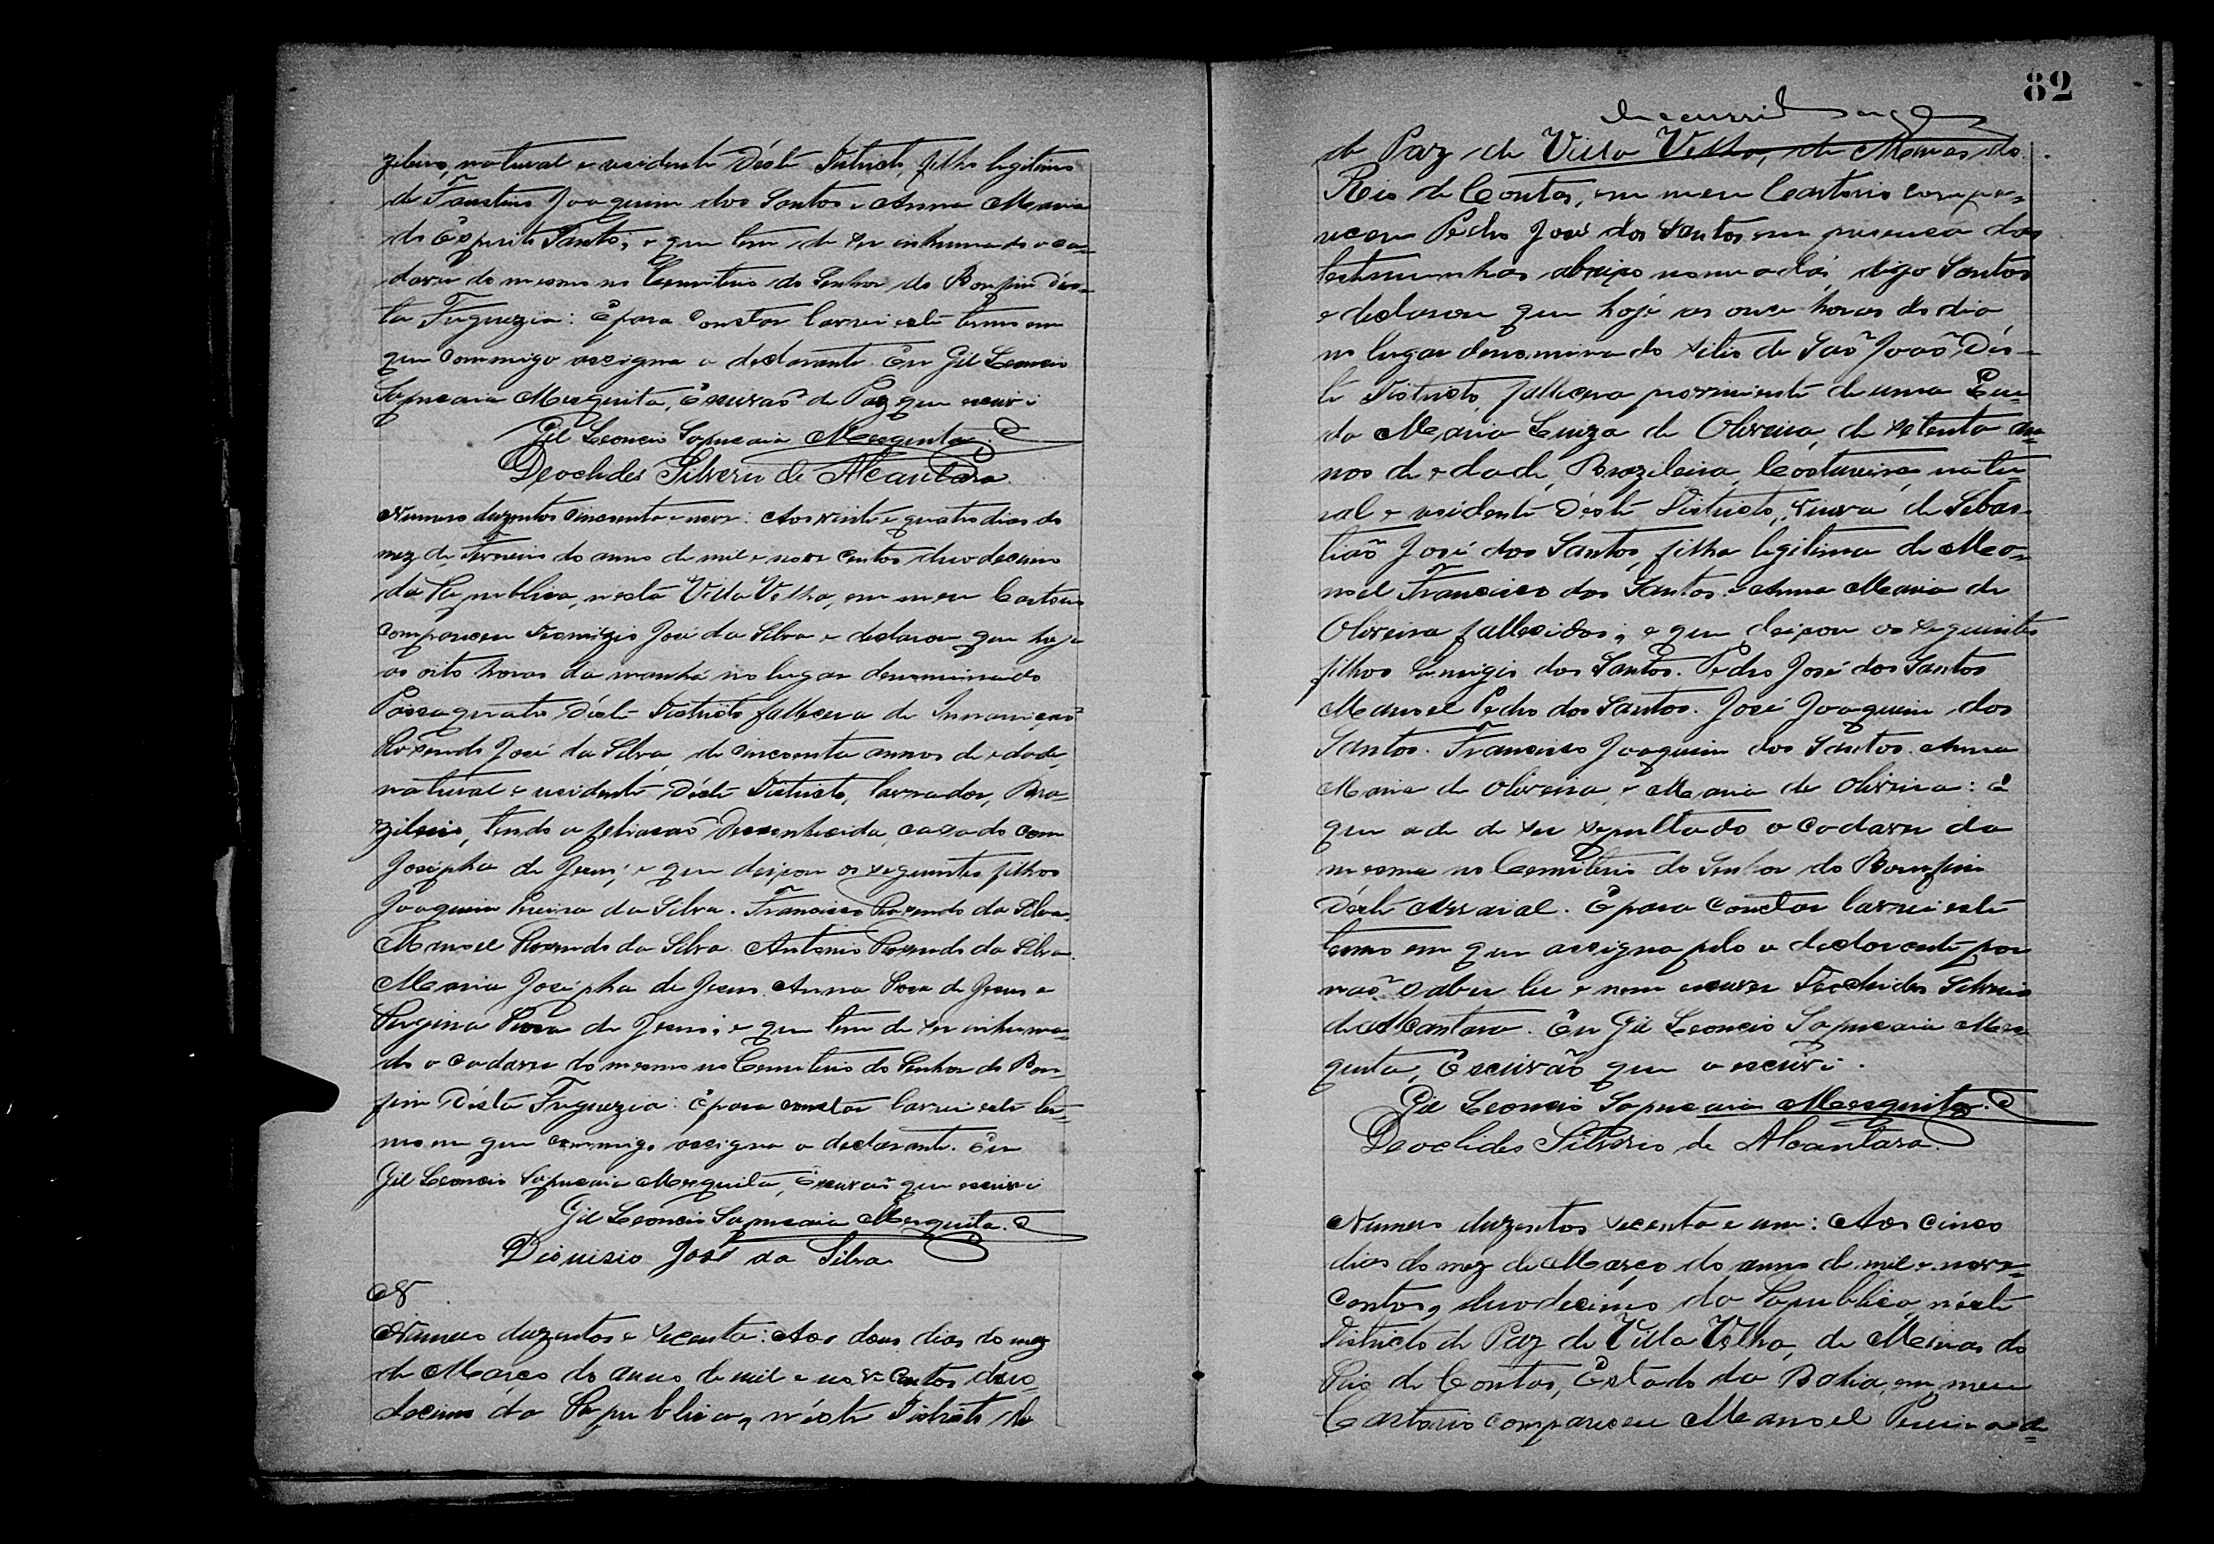 zileiro, natural e residente Déste Districto, filho legitimo
de Faustino Joaquim dos Santos e Anna Maria
do Espirito Santo; e que tem de ser inhumado o ca-
daver do mesmo no Cemiterio do Senhor do Bomfim Dés-
ta Freguezia: E para constar lavrei este termo em
que commigo assigna o declarante. Eu Gil Leoncio
Sapucaia Mesquita, Escrivaõ de Paz que escrivi
Gil Leoncio Sapucaia Mesquita.
Deoclides Silverio de Alcantara
Numero duzentos cincoenta e nove: Aos vinte e quatro dias do
mez de Fevereiro do anno de mil e nove centos duodecimo
da Republica, nesta Villa Velha, em meu Cartorio
compareceu Dionizio José da Silva e declarou que hoje
as oito horas da manhã no lugar denominado
Passaquatro Déste Districto fallecera de
Rozendo José da Silva, de cincoenta annos de edade,
natural e residente Déste Districto, lavrador, Bra-
zileiro, tendo a filiacaõ Desconhecida, casado com
Josepha de Jesus; e que deixou os seguintes filhos
Joaquim Pereira da Silva. Francisco Rozendo da Silva.
Manoel Rozendo da Silva. Antonio Rozendo da Silva.
Maria Josepha de Jesus. Anna Rosa de Jesus e
Regina Rosa de Jesus; e que tem de ser inhuma-
do o cadaver do mesmo no Cemiterio do Senhor do Bom-
fim Désta Freguezia: E para constar lavrei este ter-
mo em que commigo assigna o declarante. Eu
Gil Leoncio Sapucaia Mesquita, Escrivaõ que escrivi
Gil Leoncio Sapucaia Mesquita.
Dionisio José da Silva
N
Numero duzentos e secenta: Aos dous dias do mez
de Março do anno de mil e nove centos duo-
decimo da Republica, néste Districto de
82
de Paz de Villa Velha, de Minas do
Rio de Contas, em meu Cartorio compa-
receu Pedro José dos Santos em presença das
testemunhas abaixo nomeadas, digo Santos
e declarou que hoje as onze horas do dia
no lugar denominado sitio de Saõ Joaõ Dés-
te Districto, fallecera proviniente de uma
da Maria Luiza de Oliveira, de setenta an-
nos de edade, Brazileira, Costureira, natu-
ral e residente Déste Districto, viuva de Sebas-
tiaõ José dos Santos, filha legitima de Ma-
noel Francisco dos Santos e Anna Maria de
Oliveira fallecidos; e que deixou os seguintes
filhos Remigio dos Santos. Pedro José dos Santos
Manoel Pedro dos Santos. José Joaquim dos
Santos. Francisco Joaquim dos Santos. Anna
Maria de Oliveira e Maria de Oliveira: E
que a de de ser sepultado o cadaver da
mesma no Cemiterio do Senhor do Bomfim
Déste Arraial. E para constar lavrei este
termo em que assigna pelo o declarante por
naõ saber ler e nem escrever Deoclides Silverio
de Alcantara. Eu Gil Leoncio Sapucaia Mes-
quita, Escrivão que o escrivi.
Gil Leoncio Sapucaia Mesquita.
Deoclides Silverio de Alcantara.
Numero duzentos secenta e um: Aos cinco
dias do mez de Março do anno de mil e nove-
centos, duodecimo da Republica néste
Districto de Paz de Villa Velha, de Minas do
Rio de Contas, Estado da Bahia, em meu
Cartorio compareceu Manoel Pereira de